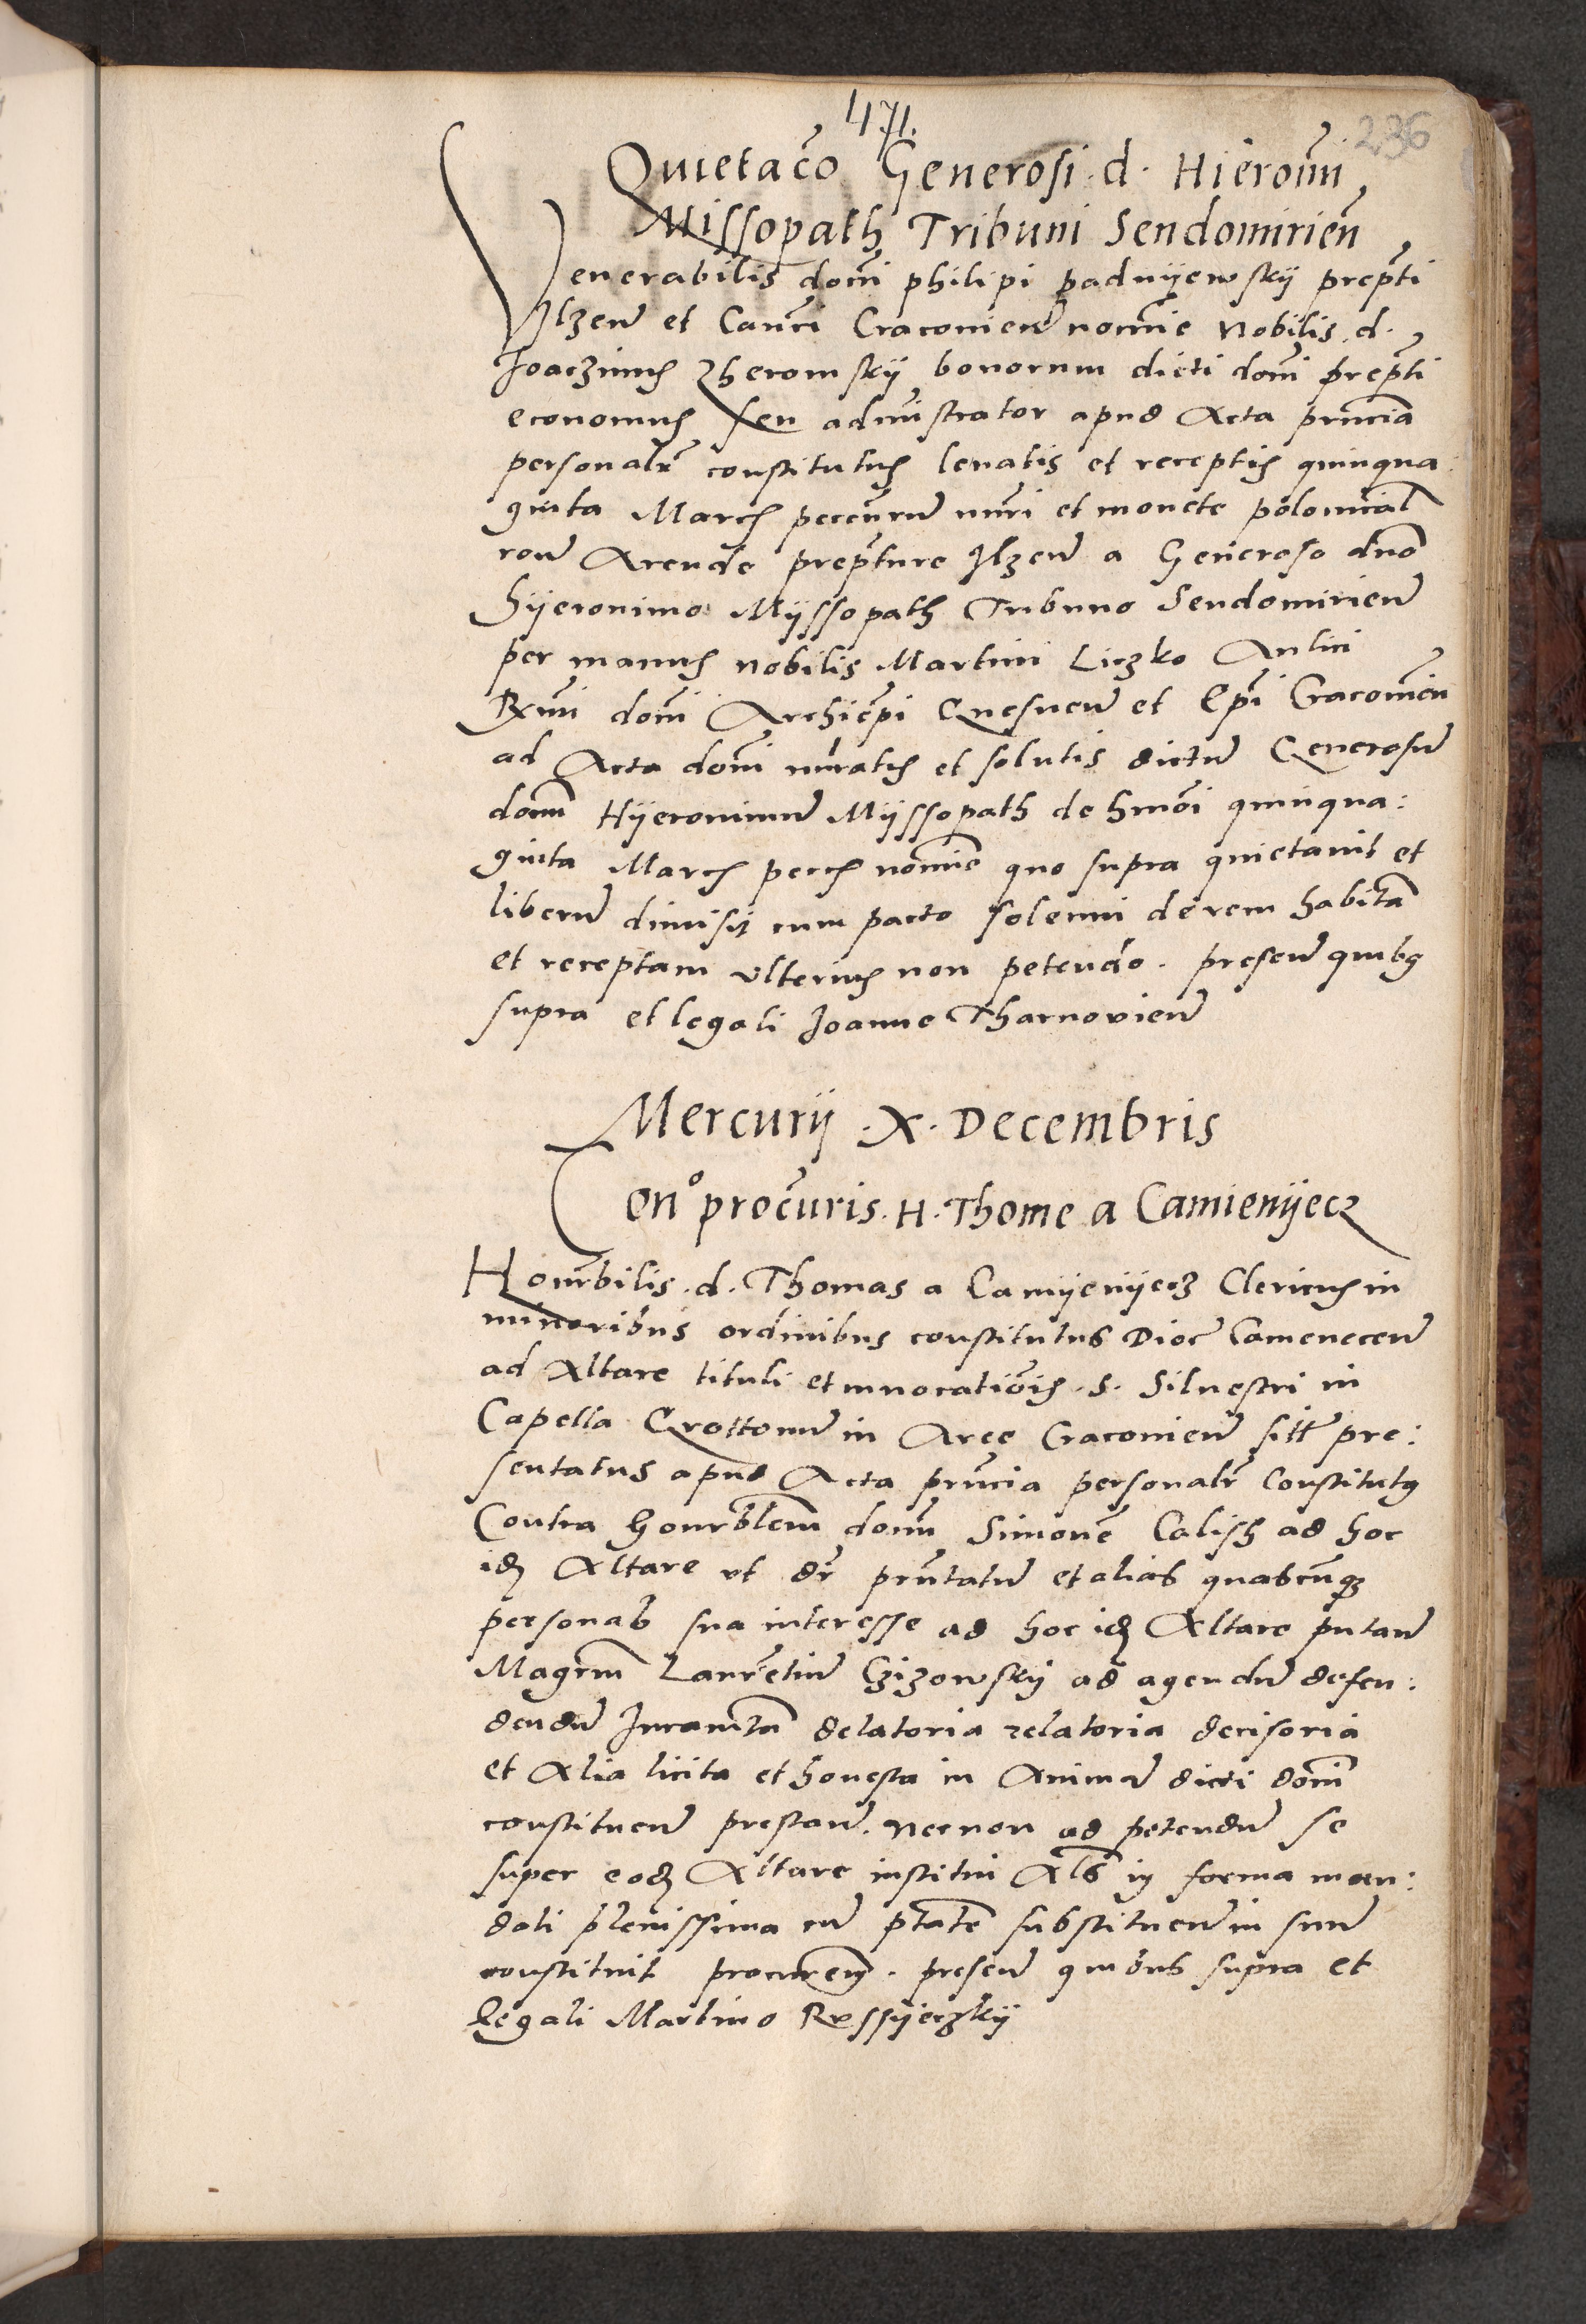 471.
236
Quietac̃o Generosi d. Hieronimi
Missopath Tribuni Sendomirien̄
Venerabilis dom̄i philipi padnijewskij prep̄ti
Ilzen̄ et Can̄ci Cracovien̄ nom̄ie nobilis d.
Joaczimus Zheromskij bonorum dicti dom̄i prep̄ti
economus seu adm̄istrator apud Acta prn̄cia
personalr̄ constitutus levatis et receptis quinqua:
ginta Marcis peccun̄rum nm̄ri et monete polonical̄
roñe Arende prep̄ture Ilzen̄ a Generoso dn̄o
Hijeronimo Mijssopath Tribuno Sendomirien̄
per manus nobilis Martini Liczko Aulici
Rx̄mi dom̄i Archiep̄i Gnesnen̄ et Ep̄i Cracovien̄
ad Acta dom̄i nūratis et solutis dictum̄ Generosum̄
dom̄ Hijeronimum̄ Mijssopath de hmōi quinqua:
ginta Marcis peccis nom̄ie quo supra quietavit et
liberum̄ dimisit cum pacto solenni de rem habitam̄
et receptam ulterius non petendo. presen̄ quibus
supra et legali Joanne Tharnovien̄
Mercurij .X. Decembris
Con° procūris. H. Thome a Camienijecz
Honr̄bilis .d. Thomas a Camijenijecz Clericus in
minoribus ordinibus constitutus Dioc̄ Camenecen̄
ad Altare tituli et invocatiōis .S. Silvestri in
Capella Grottonum̄ in Arce Cracovien̄ sitt̄ pre:
sentatus apud Acta prn̄cia personalr̄ Constitutus
Contra honr̄blem̄ dom̄ Simonē Calish ad hoc
idem Altare ut dr̄ prn̄tatum̄ et alias quascunq̄
personas sua interesse ad hoc idem Altare putan̄
Magr̄m Laurētium̄ Czizowskij ad agendum̄ defen:
dendum̄ Juram̄ta delatoria relatoria decisoria
et Alia licita et honesta in Animam̄ dicti dom̄i
constituen̄ prestan̄. Necnon ad petendum̄ se
super eodem Altare institui Al̄s in forma man:
dati plenissima cum̄ p̄tate substituen̄ in suum̄
constituit procur̄em. presen̄ quibus supra et
legali Martino Rossijeczkij